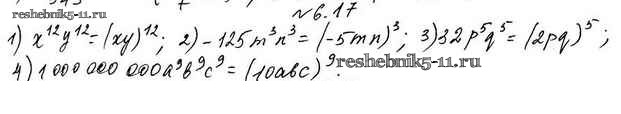 №6.17
reshebnik5-11.ru
1) x¹²y¹² = (xy)¹²; 2) -125m³n³ = (-5mn)³; 3) 32p⁵q⁵ = (2pq)⁵;
4) 1 000 000 000a⁹b⁹c⁹ = (10abc)⁹.
reshebnik5-11.ru